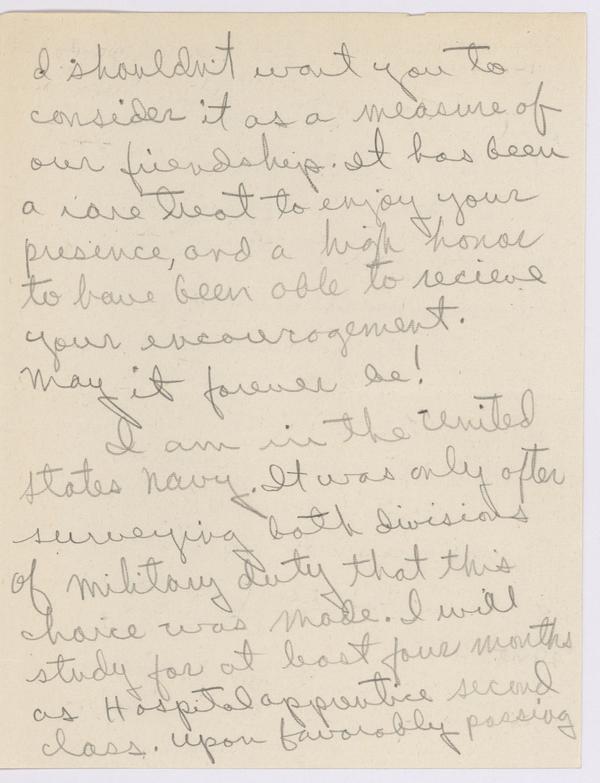 I shouldn't want you to
consider it as a measure of
our friendship. It has been
a rare treat to enjoy your
presence, and a high honor
to have been able to recieve
your encouragement.
May it forever be!
I am in the United
States Navy. It was only after
surveying both divisions
of military duty that this
choice was made. I will
study for at least four months
as Hospital apprentice second
class. Upon favorably passing